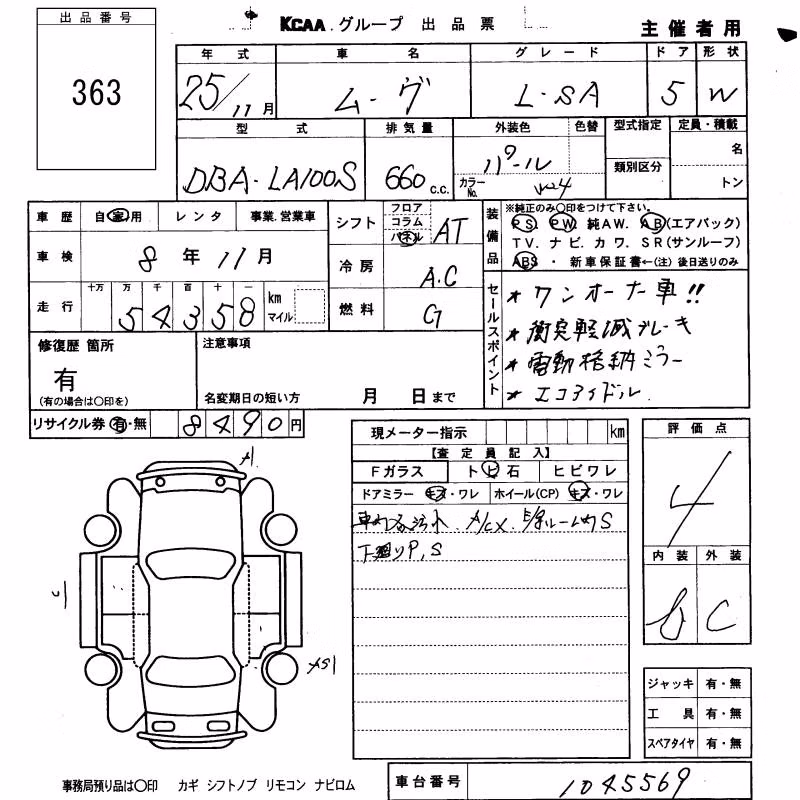 出品番号
363
KCAA.グループ 出品票
主催者用
年式 車名 グレード ドア 形状
25/11月 ム-ヴ L・SA 5 W
型式 排気量 外装色 色替 型式指定 定員・積載
DBA-LA100S 660 c.c. パール カラーNo. W24 類別区分 名
トン
車歴 自家用 レンタ 事業.営業車
シフト フロア コラム パネル AT
装備品 ※純正のみ〇印をつけて下さい。
PS. PW. 純AW. AB(エアバック)
TV. ナビ. カワ. SR(サンルーフ)
ABS ・ 新車保証書←(注)後日送りのみ
車検 8年11月
冷房 A.C
走行 十万 万 千 百 十 一 km マイル
54358
燃料 G
セールスポイント
* ワンオーナー車!!
* 衝突軽減ブレーキ
* 電動格納ミラー
* エコアイドル.
修復歴 箇所
有
(有の場合は〇印を)
注意事項
名変期日の短い方 月 日まで
リサイクル券 有・無 8490円
現メーター指示 km
【査定員記入】
Fガラス トビ石 ヒビワレ
ドアミラー キズ・ワレ ホイール(CP) キズ・ワレ
車内 汚れ. A/CX. ルーム内S
下廻りP,S
評価点
4
内装 外装
b C
A1
C
AS1
ジャッキ 有・無
工具 有・無
スペアタイヤ 有・無
事務局預り品は〇印 カギ シフトノブ リモコン ナビロム
車台番号 1045569